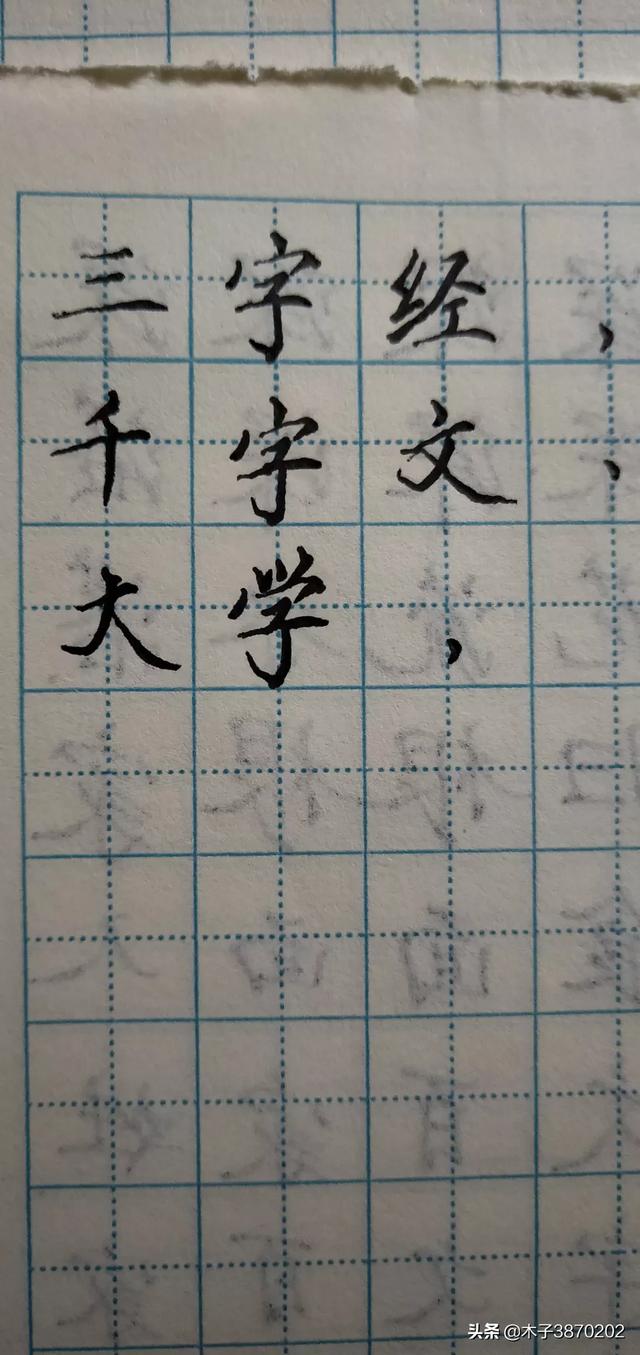 三字经，
千字文、
大学，
头条 @木子3870202